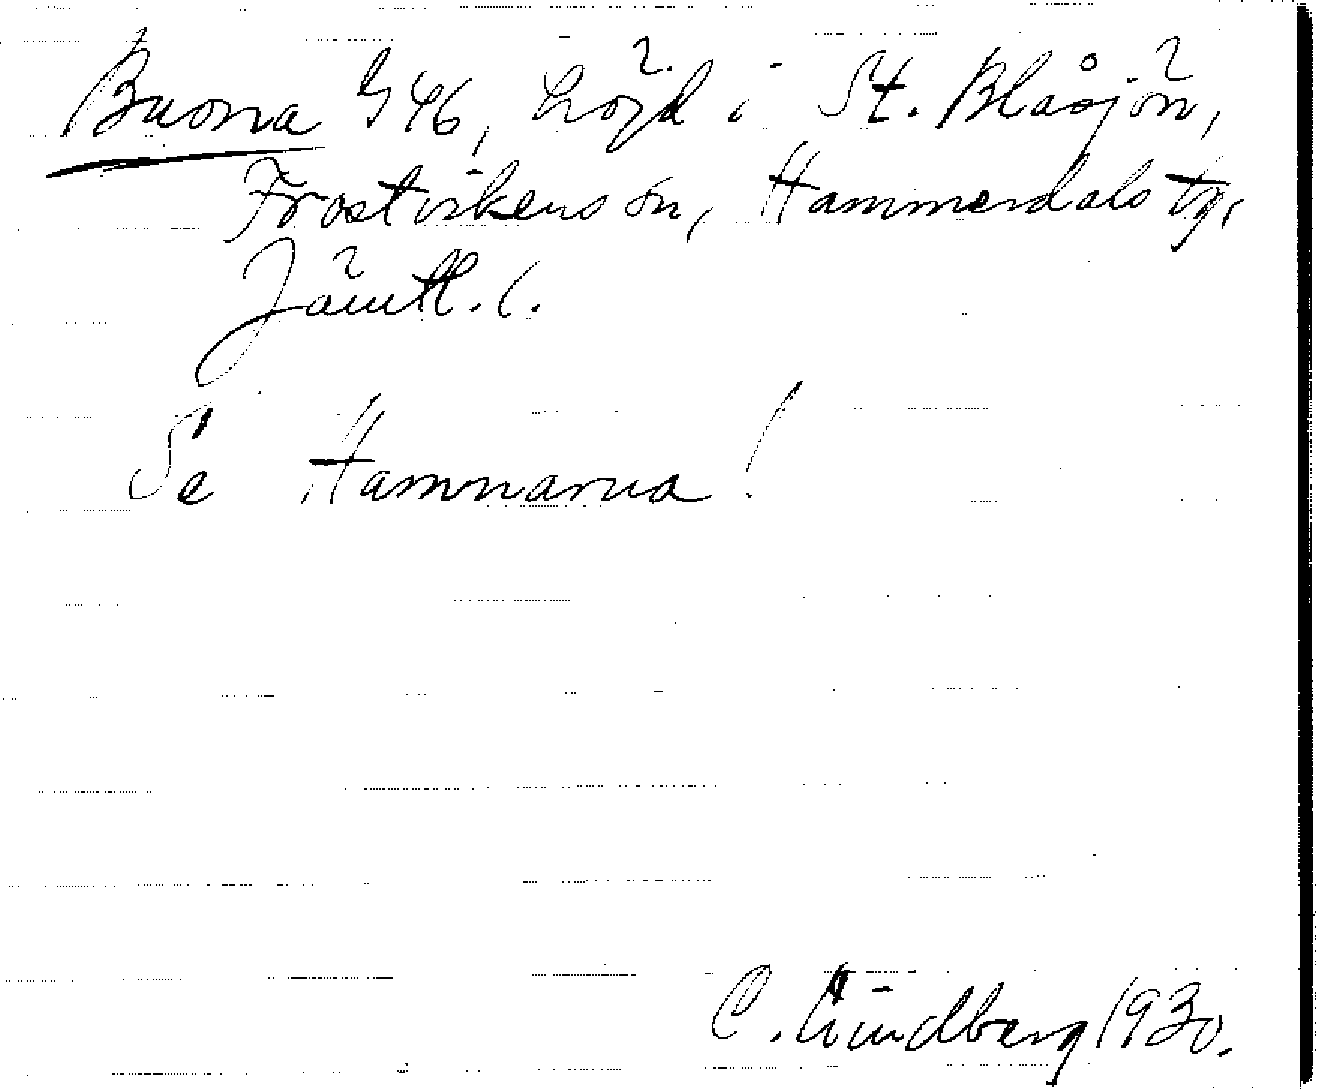 Buorna G46, höjd i St. Blåsjön,
Frostvikens sn, Hammerdals tg,
Jämtl. l.
Se Hamnarna!
C. Lindberg 1930.